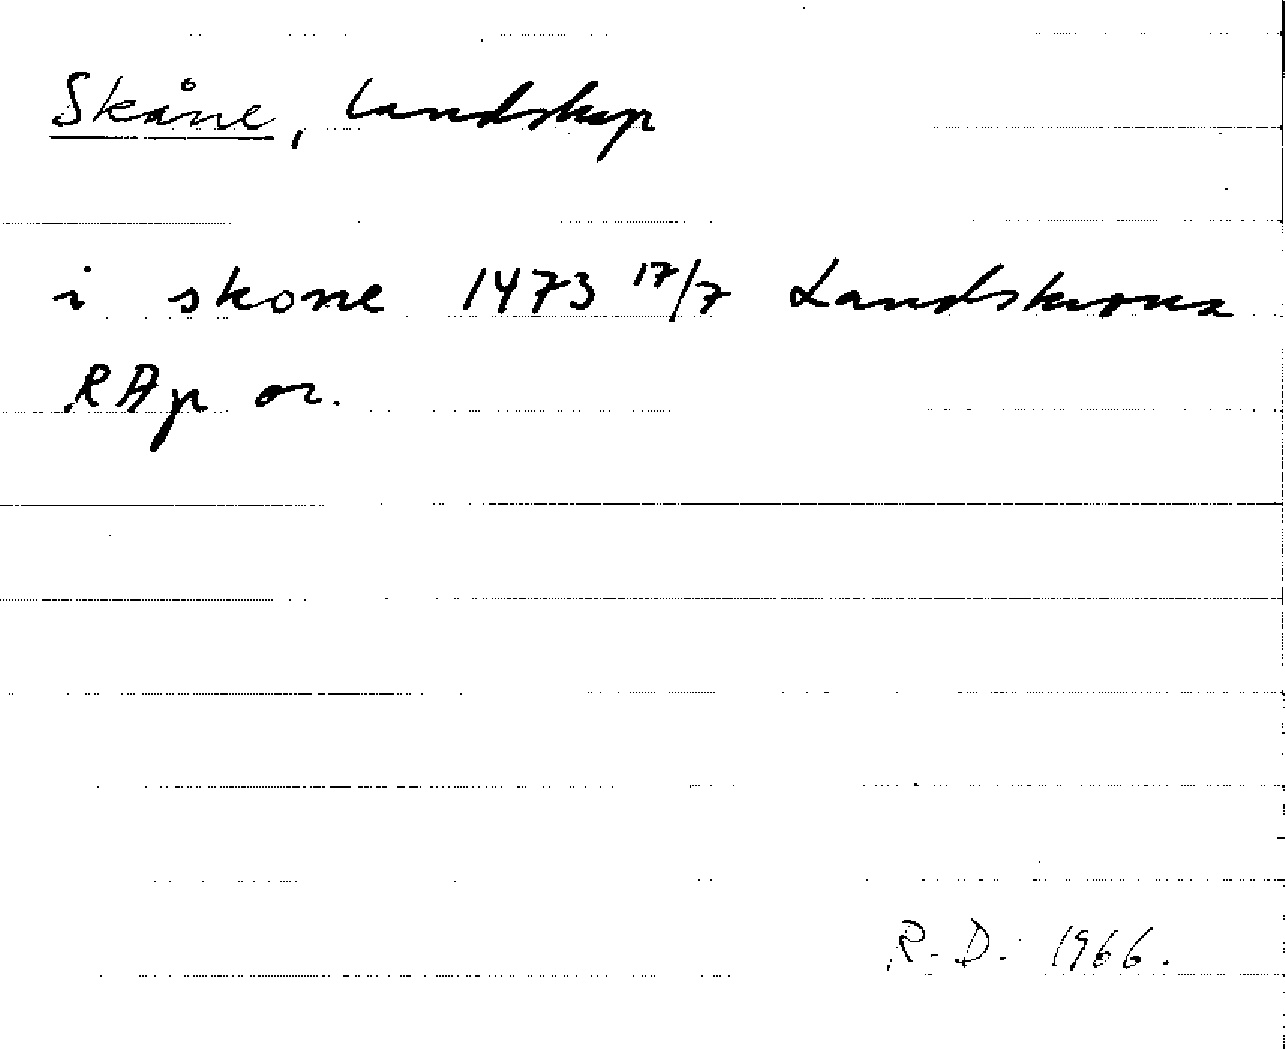 Skåne, landskap
i skone 1473 17/7 Landskrona
RAp or.
R.D. 1966.